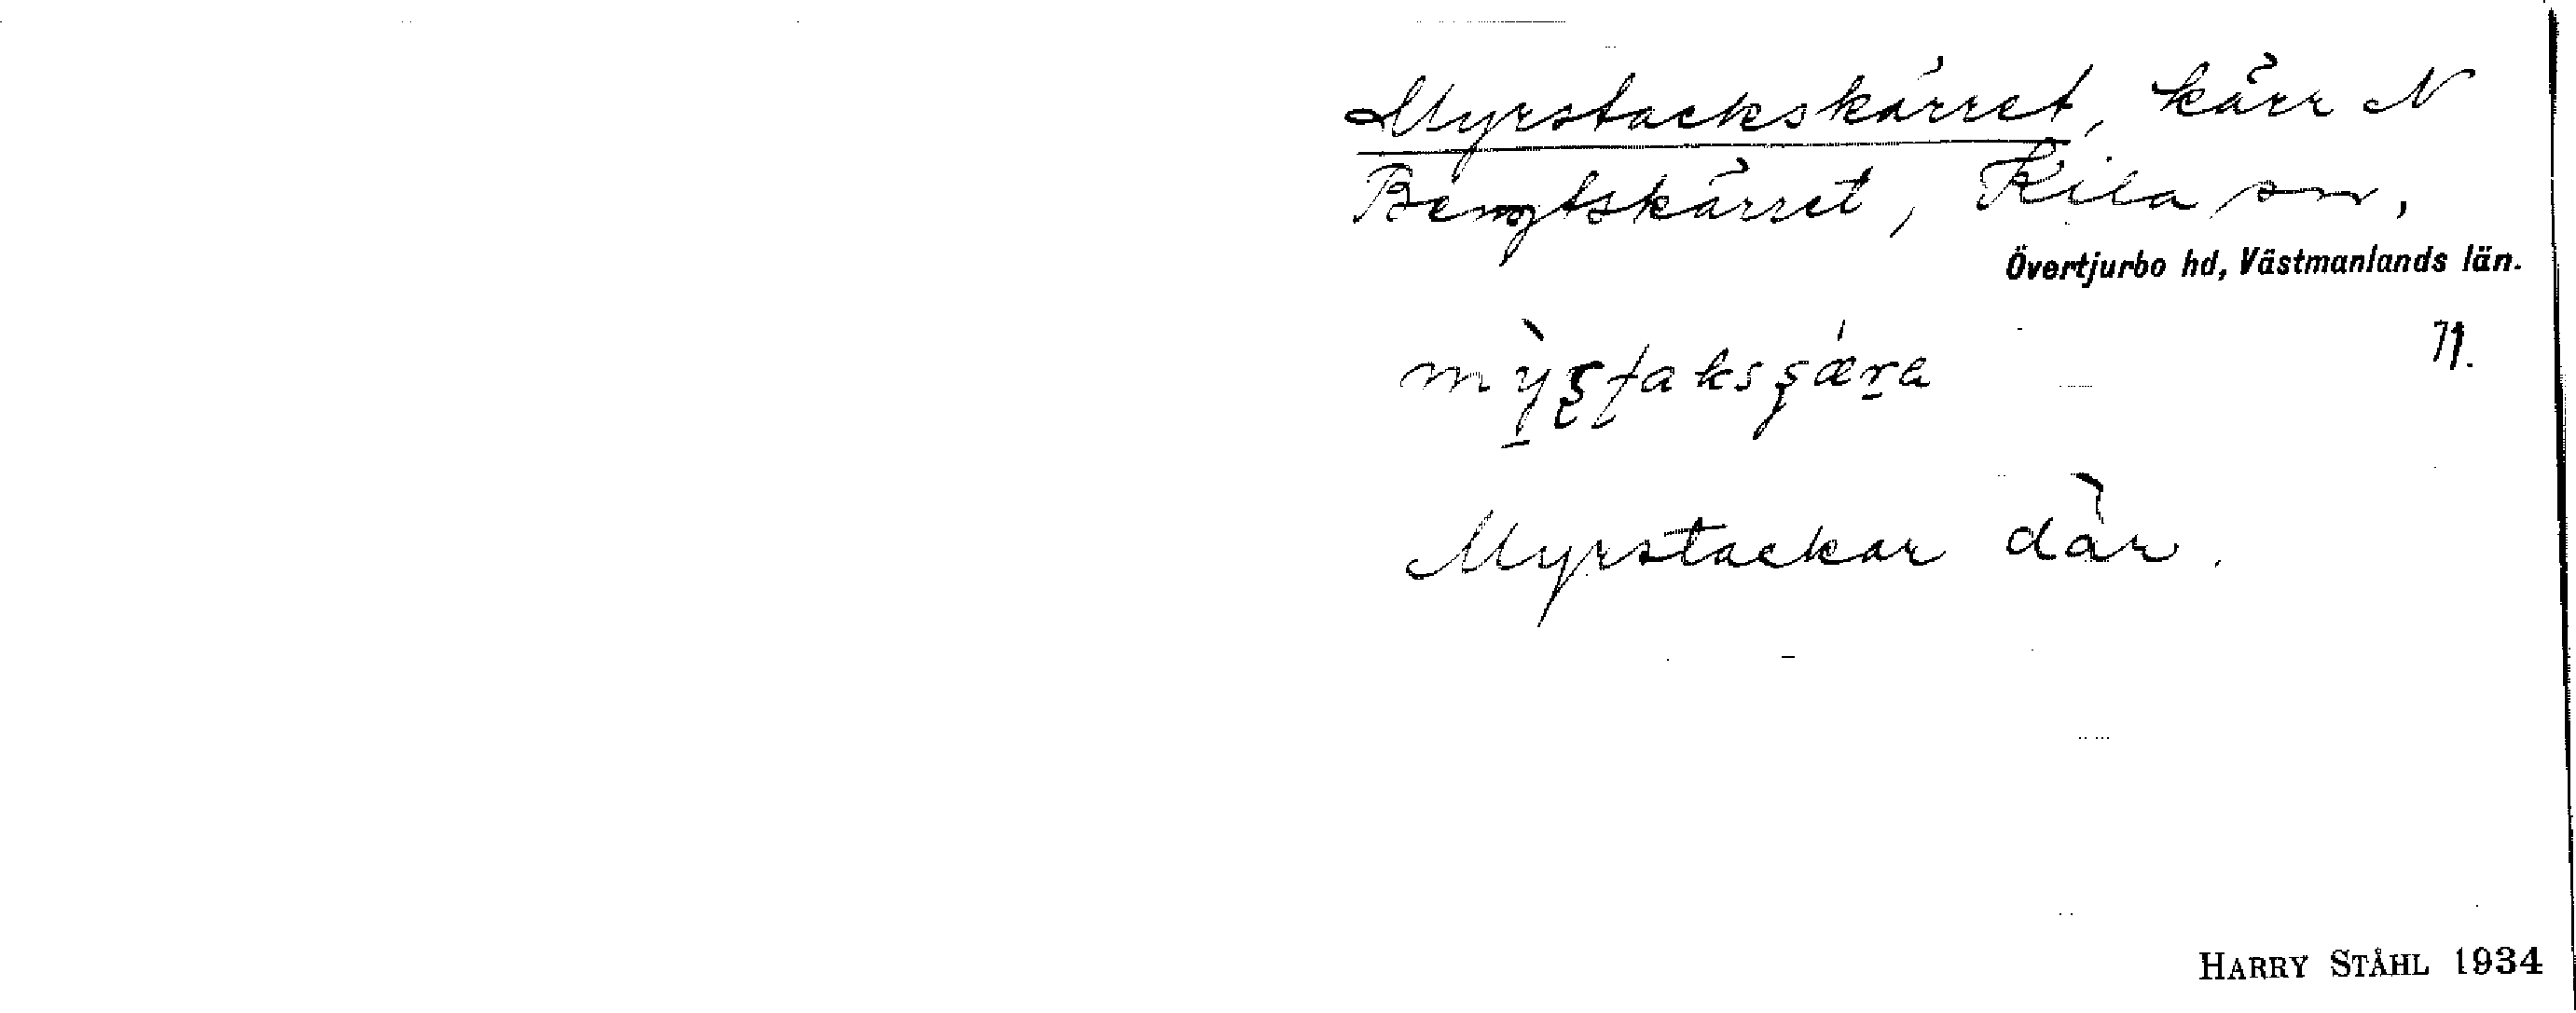 Myrstackskärret, kärr N
Bengtskärret, Kila sn,
Övertjurbo hd, Västmanlands län.
71.
Myrstackar där.
HARRY STÅHL 1934